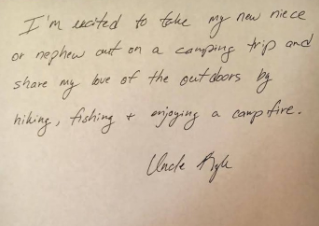 I'm excited to take my new niece
or nephew out on a camping trip and
share my love of the outdoors by
hiking, fishing + enjoying a campfire.
Uncle Kyle